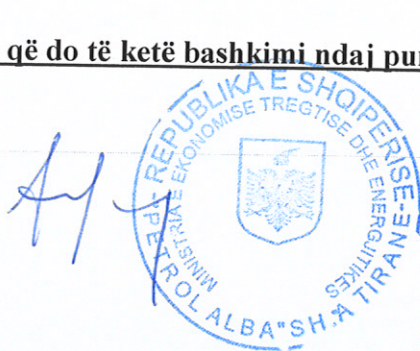 që do të ketë bashkimi ndaj pu
REPUBLIKA E SHQIPERISE
MINISTRIA E EKONOMISE TREGTISE DHE ENERGJITIKES
PETROL ALBA" SH.A TIRANE